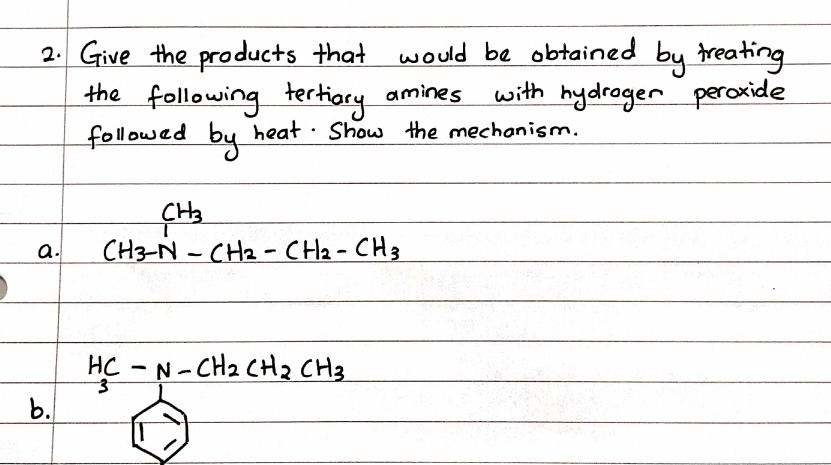 2. Give the products that would be obtained by treating
the following tertiary amines with hydrogen peroxide
followed by heat. Show the mechanism.
CH3
a. CH3-N - CH2 - CH2 - CH3
H3C - N - CH2 CH2 CH3
b.